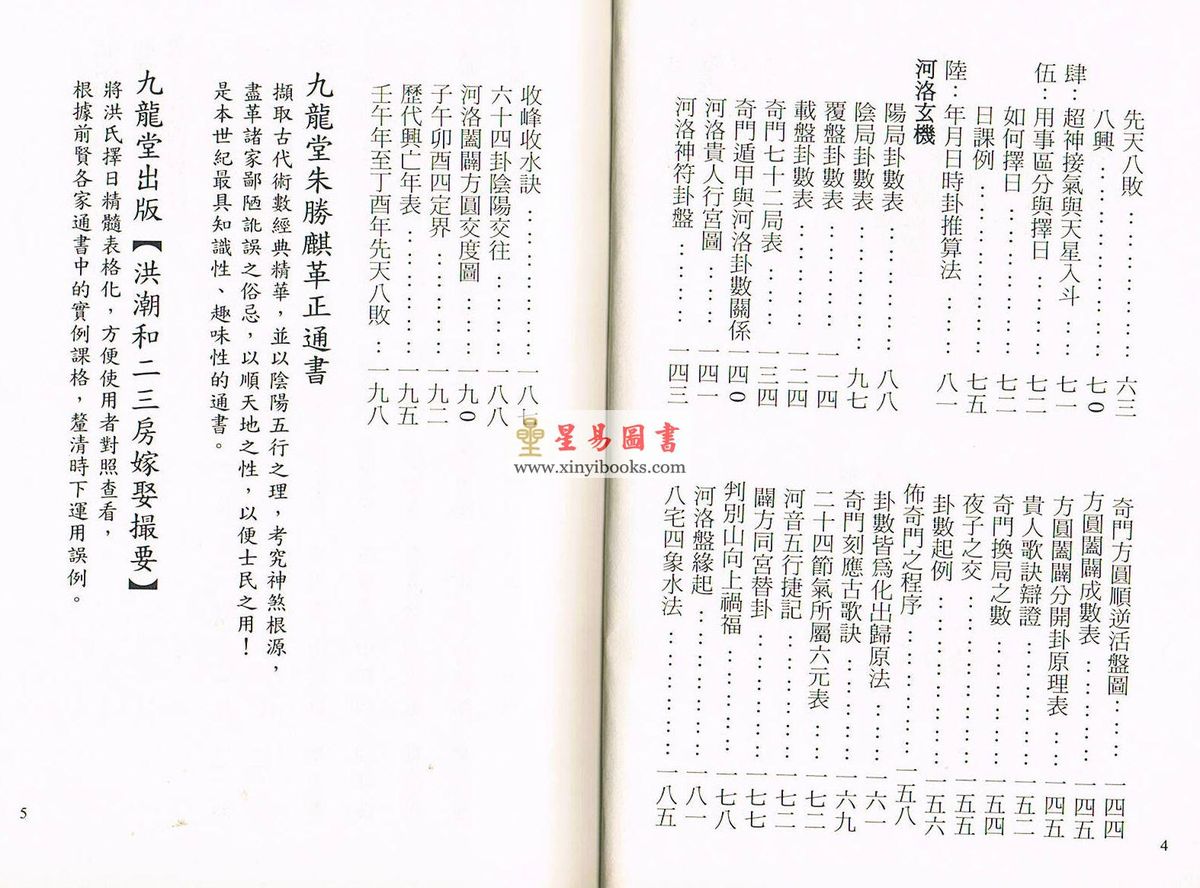 先天八敗…………六三
八興……………七0
肆：超神接氣與天星入斗…七一
伍：用事區分與擇日…七二
如何擇日………七二
日課例…………七五
陸：年月日時卦推算法…八一
河洛玄機
陽局卦數表………八八
陰局卦數表………九七
覆盤卦數表………一一四
載盤卦數表………一二四
奇門七十二局表…一三四
奇門遁甲與河洛卦數關係一四0
河洛貴人行宮圖…一四一
河洛神符卦盤……一四三
奇門方圓順逆活盤圖……一四四
方圓闔闢成數表………一四五
方圓闔闢分開卦原理表…一四五
貴人歌訣辯證………一五二
奇門換局之數………一五四
夜子之交…………一五五
卦數起例…………一五六
佈奇門之程序………一五八
卦數皆爲化出歸原法……一六一
奇門刻應古歌訣………一六九
二十四節氣所屬六元表…一七二
河音五行捷記………一七二
闢方同宮替卦………一七七
判別山向上禍福………一七八
河洛盤緣起…………一八一
八宅四象水法………一八五
4
收峰收水訣………一八七
六十四卦陰陽交往…一八八
河洛闔闢方圓交度圖…一九0
子午卯酉四定界…一九二
歷代興亡年表……一九五
壬午年至丁酉年先天八敗…一九八
九龍堂朱勝麒革正通書
擷取古代術數經典精華，並以陰陽五行之理，考究神煞根源，
盡革諸家鄙陋訛誤之俗忌，以順天地之性，以便士民之用！
是本世紀最具知識性、趣味性的通書。
九龍堂出版【洪潮和二三房嫁娶撮要】
將洪氏擇日精髓表格化，方便使用者對照查看，
根據前賢各家通書中的實例課格，釐清時下運用誤例。
5
星易圖書
www.xinyibooks.com